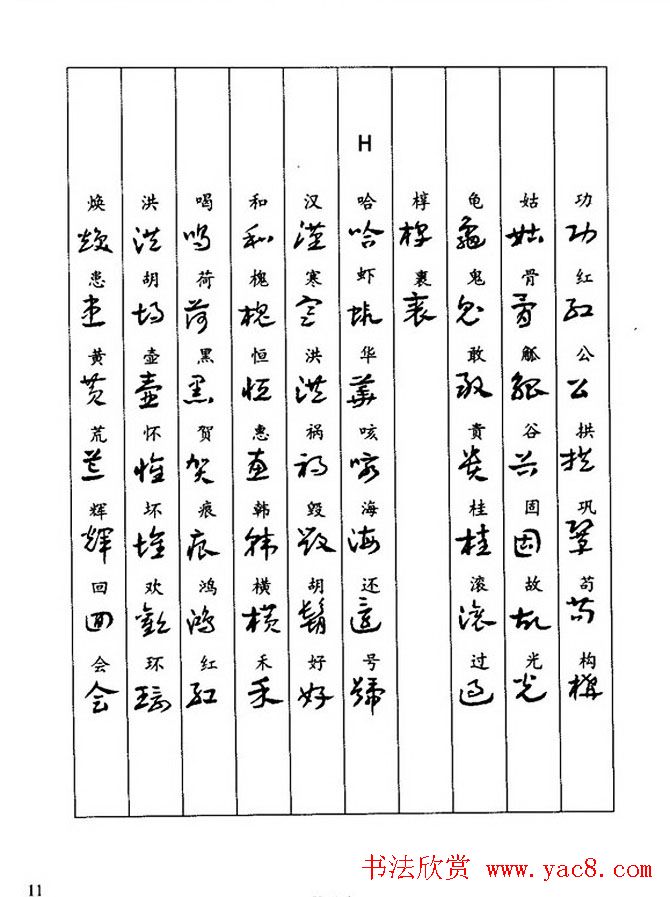 功红公拱巩苟构
姑骨觚谷固故光
龟鬼敢贵桂滚过
椁裹
H
哈虾华咳海还号
汉寒洪祸毁胡好
和槐恒惠韩横禾
喝荷黑贺痕鸿红
洪胡壶怀坏欢环
焕患黄荒辉回会
11
书法欣赏 www.yac8.com